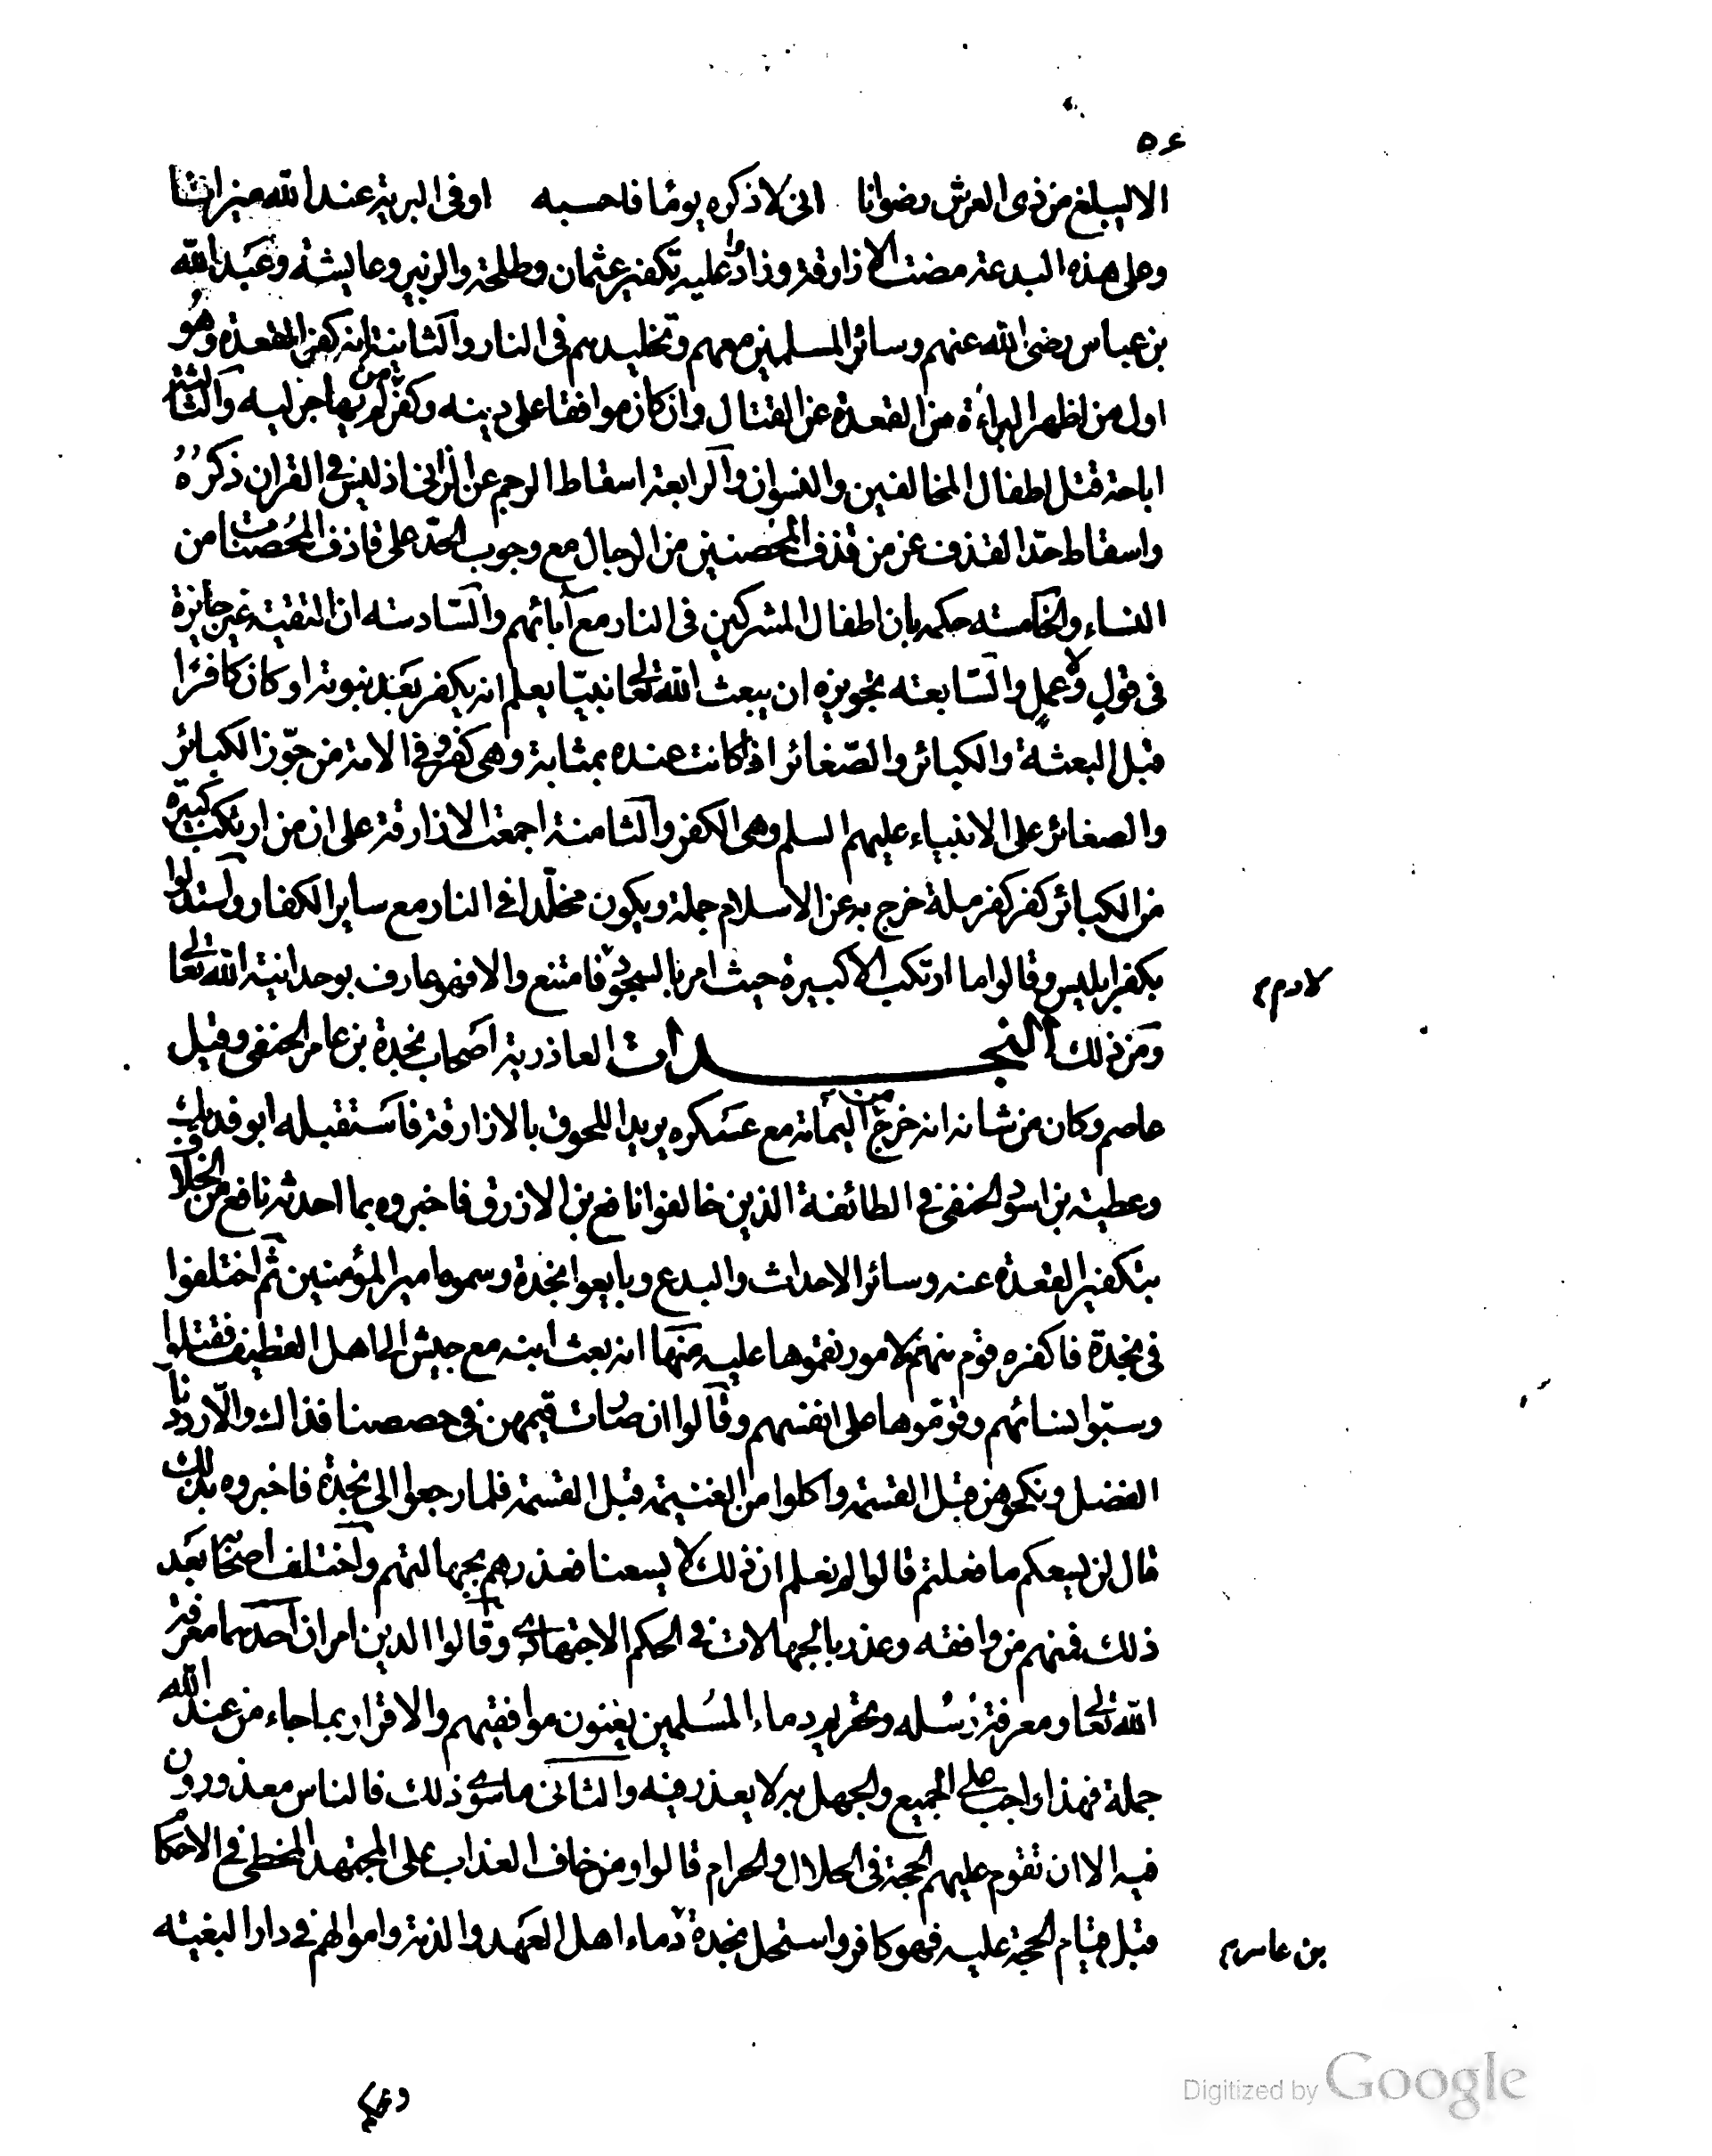 ٥٤
الا ليبلغ من ذى العرش رضوانا انى لاذكره يومًا فاحسبه اوفى البرية عند الله ميزانا
وعلى هذه البدعة مضت الازارقة وزادوا عليه تكفير عثمان وطلحة والزبير وعايشة وعبد الله
بن عباس رضى الله عنهم وسائر المسلمين معهم وتخليدهم فى النار والثانية انه كفر القعدة وهو
اول من اظهر البراءة من القعدة عن القتال وان كان موافقا على دينه وكفر من لم يهاجر اليه والثالثة
اباحة قتل اطفال المخالفين والنسوان والرابعة اسقاط الرجم عن الزانى اذ ليس فى القران ذكره
واسقاط حدّ القذف عن من قذف المحصنين من الرجال مع وجوب الحدّ على قاذف المحصنات من
النساء والخامسة حكمه بان اطفال المشركين فى النار مع آبائهم والسّادسة ان التقية غير جايزة
فى قول ولا عمل والسّابعة تجويزه ان يبعث الله تعالى نبيّا يعلم انه يكفر بعد نبوته او كان كافرًا
قبل البعثة والكبائر والصّغائر اذا كانت عنده بمثابة وهى كفر وفى الامة من جوّز الكبائر
والصغائر على الانبياء عليهم السلم وهى الكفر والثامنة اجمعت الازارقة على ان من ارتكب كبيرة
من الكبائر كفر كفر ملة خرج به عن الاسلام جملة ويكون مخلّدا فى النار مع ساير الكفار واستدلوا
بكفر ابليس وقالوا ما ارتكب الا كبيرة حيث امر بالسجود فامتنع والا فهو عارف بوحدانية الله تعالى
لادم م
ومن ذلك النجدات العاذرية اصحاب نجدة بن عامر الحنفى وقيل
عاصم وكان من شانه انه خرج من اليمامة مع عسكره يريد اللحوق بالازارقة فاستقبله ابو فديك
وعطية بن اسود الحنفى فى الطائفة الذين خالفوا نافع بن الازرق فاخبروه بما احدثه نافع من الخلاف
بتكفير القعدة عنه وسائر الاحداث والبدع وبايعوا نجدة وسموه امير المؤمنين ثم اختلفوا
فى نجدة فاكفره قوم منهم لامور نقموها عليه منها انه بعث ابنه مع جيش الى اهل القطيف فقتلوا
وسبّوا نسائهم وقوّموها على انفسهم وقالوا ان صارت قيمهن فى حصصنا فذاك والّا رددنا
الفضل ونكحوهن قبل القسمة واكلوا من الغنيمة قبل القسمة فلما رجعوا الى نجدة فاخبروه بذلك
قال لن يسعكم ما فعلتم قالوا لم نعلم ان ذلك لا يسعنا فعذرهم بجهالتهم واختلف اصحابه بعد
ذلك فمنهم من وافقه وعذر بالجهالات فى الحكم الاجتهادى وقالوا الدين امران احدهما معرفة
الله تعالى ومعرفة رسله وتحريم دماء المسلمين يعنون موافقيهم والاقرار بما جاء من عند الله
جملة فهذا واجب على الجميع والجهل به لا يعذر فيه والثانى ما سوى ذلك فالناس معذورون
فيه الا ان تقوم عليهم الحجة فى الحلال والحرام قالوا ومن خاف العذاب على المجتهد المخطى فى الاحكام
قبل قيام الحجة عليه فهو كافر واستحل نجدة دماء اهل العهد والذمة واموالهم فى دار البغية
بن عامر م
Digitized by Google